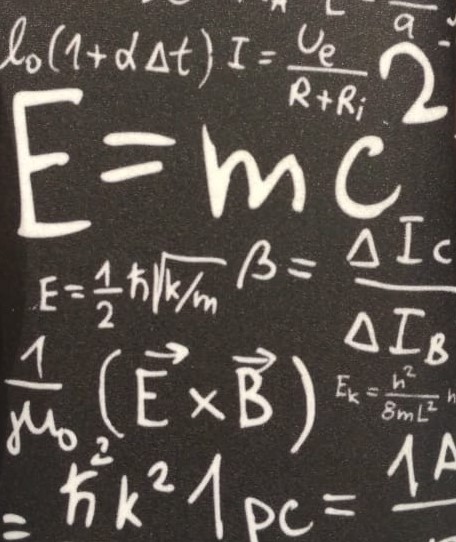 l₀(1+αΔt) I = Ue / (R+Ri)
E = mc²
E = 1/2 ħ√k/m β = ΔIc / ΔIB
1/μ₀ (E⃗ × B⃗) Ek = h² / 8mL²
= ħ²k² 1pc = 1A